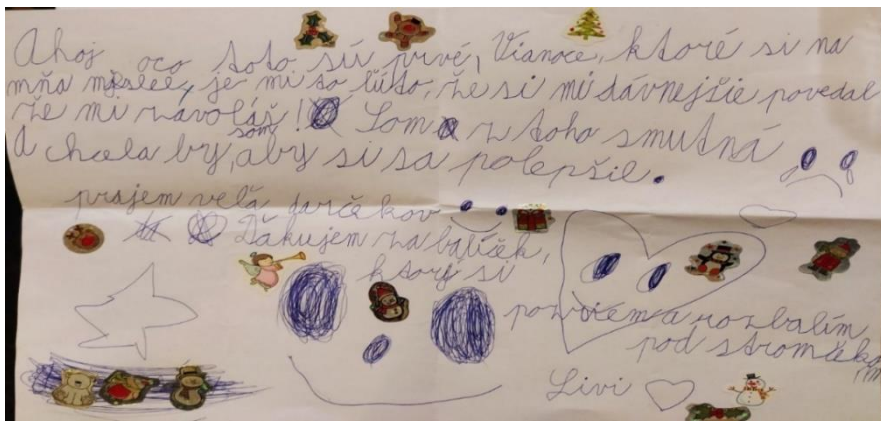 Ahoj oco toto sú prvé, Vianoce, ktoré si na
mňa , je mi to ľúto, že si mi dávnejšie povedal
že mi zavoláš! Som z toho smutná
A chcela by som, aby si sa polepšil.
prajem veľa darčekov
Ďakujem za balíček,
ktorý si
a rozbalím
pod stromčekom
Livi